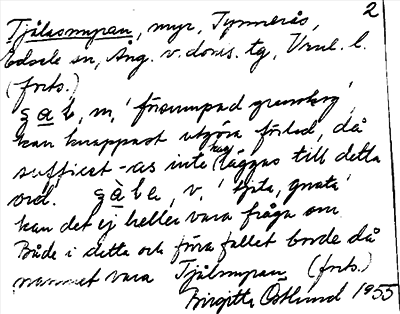 2
Tjålsomyran, myr, Tynnerås,
Edsele sn, Ång. v. doms. tg, Vrnl. l.
(forts.)
gab, m, 'försumpad granskog',
kan knappast utgöra förled, då
suffixet -as inte kan läggas till detta
ord. gàba, v, 'tjata, gnata'
kan det ej heller vara fråga om
Både i detta och förra fallet borde då
namnet vara Tjålmyran (forts.)
Birgitta Östlund 1955